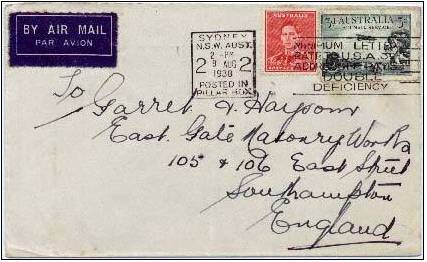 BY AIR MAIL
PAR AVION
SYDNEY
N.S.W. AUST.
2 - PM
9 AUG
1938
2 2
POSTED IN
PILLAR BOX
AUSTRALIA
AUSTRALIA
AIR MAIL SERVICE
MINIMUM LETTER
RATE U.S.A. 3D
DOUBLE
DEFICIENCY
To
Garret & Haysom
East Gate Masonry Works
105 & 106 East Street
Southampton
England